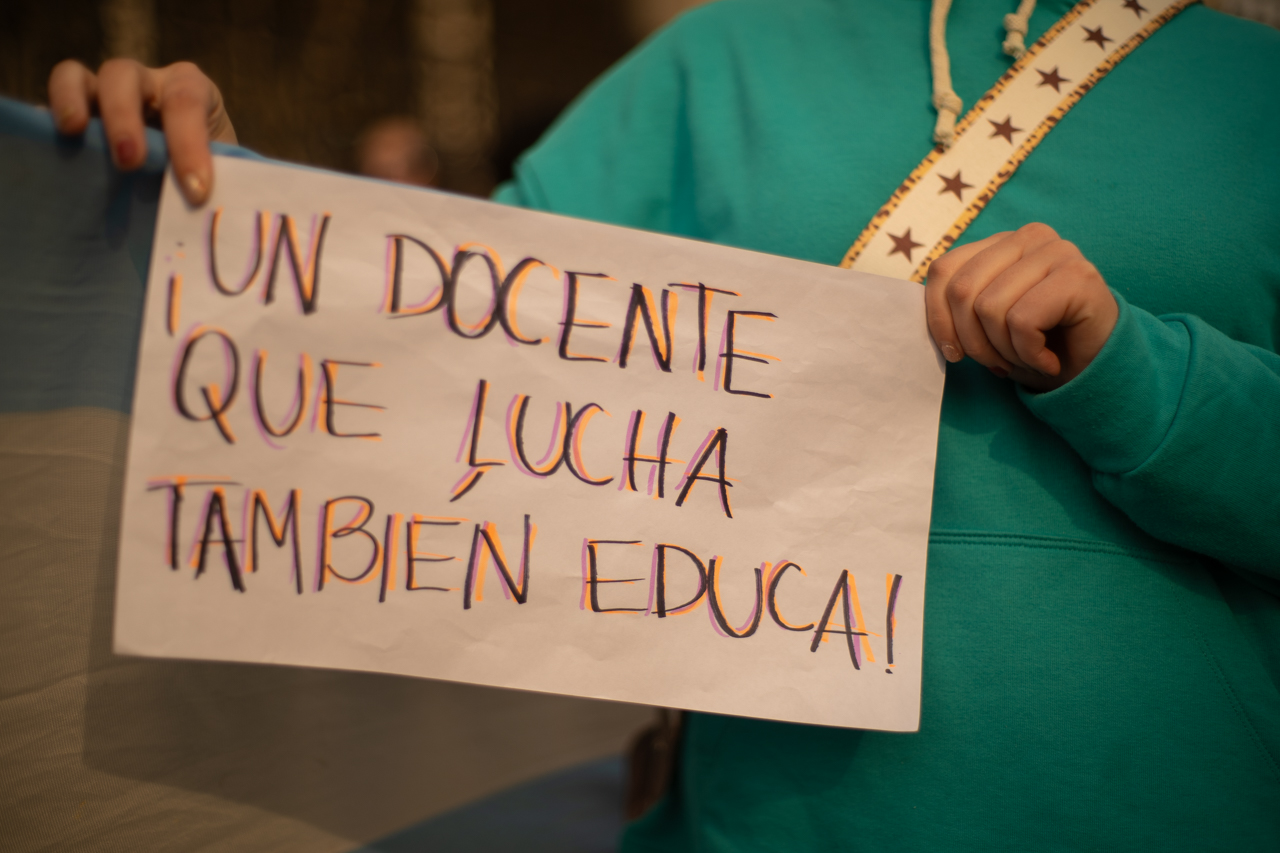 ¡UN DOCENTE
QUE LUCHA
TAMBIEN EDUCA!